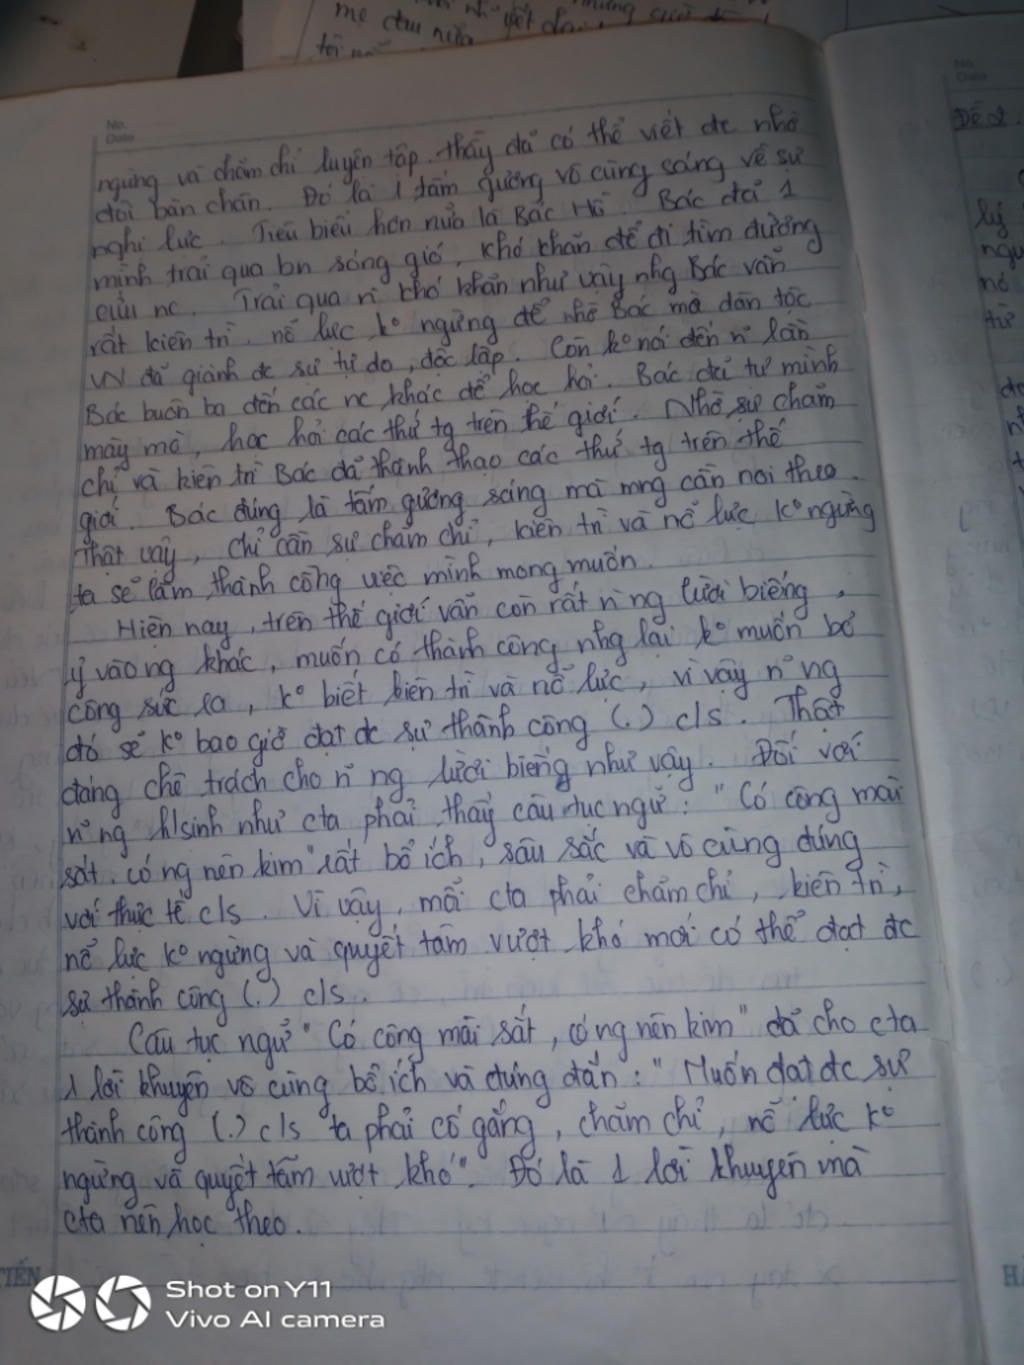 mẹ đau nữa
No.
Date
ngừng và chăm chỉ luyện tập. thầy đã có thể viết đc nhờ
đôi bàn chân. Đó là 1 tấm gương vô cùng sáng về sự
nghị lực. Tiêu biểu hơn nữa là Bác Hồ. Bác đã 1
mình trải qua bn sóng gió, khó khăn để đi tìm đường
cứu nc. Trải qua n~ khó khăn như vậy nhg Bác vẫn
rất kiên trì. nỗ lực k° ngừng để nhờ Bác mà dân tộc
VN đã giành đc sự tự do, độc lập. Còn k° nói đến n~ lần
Bác buôn ba đến các nc khác để học hỏi. Bác đã tự mình
mày mò, học hỏi các thứ tg trên thế giới. Nhờ sự chăm
chỉ và kiên trì Bác đã thành thạo các thứ tg trên thế
giới. Bác đúng là tấm gương sáng mà mng cần noi theo.
Thật vậy, chỉ cần sự chăm chỉ, kiên trì và nỗ lực k° ngừng
ta sẽ làm thành công việc mình mong muốn.
Hiện nay, trên thế giới vẫn còn rất n~ ng lười biếng,
ỷ vào ng khác, muốn có thành công nhg lại k° muốn bỏ
công sức ra, k° biết kiên trì và nỗ lực, vì vậy n~ ng
đó sẽ k° bao giờ đạt đc sự thành công (.) c/s. Thật
đáng chê trách cho n~ ng lười biếng như vậy. Đối với
n~ ng h/sinh như cta phải thấy câu tục ngữ: "Có công mài
sắt, có ng nên kim" rất bổ ích, sâu sắc và vô cùng đúng
với thực tế c/s. Vì vậy, mỗi cta phải chăm chỉ, kiên trì,
nỗ lực k° ngừng và quyết tâm vượt khó mới có thể đạt đc
sự thành công (.) c/s.
Câu tục ngữ "Có công mài sắt, có ng nên kim" đã cho cta
1 lời khuyên vô cùng bổ ích và đúng đắn: "Muốn đạt đc sự
thành công (.) c/s ta phải cố gắng, chăm chỉ, nỗ lực k°
ngừng và quyết tâm vượt khó". Đó là 1 lời khuyên mà
cta nên học theo.
No.
Date
Đề 2.
lý
ngu
nó
từ
TIẾN
H
Shot on Y11
Vivo AI camera